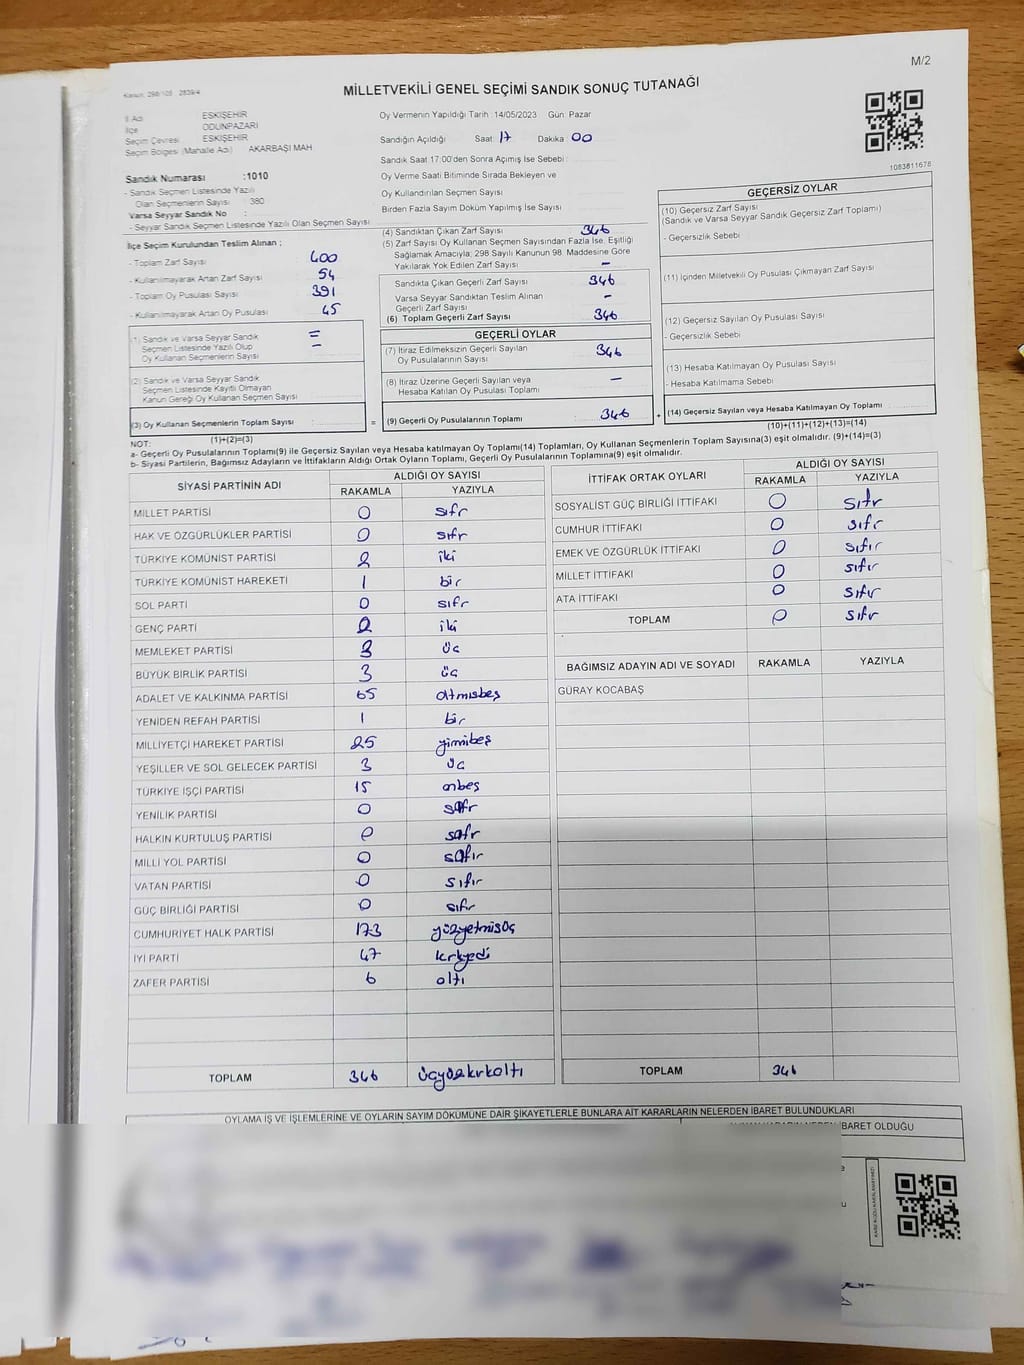 M/2
Kanun: 298/105 2839/4
MİLLETVEKİLİ GENEL SEÇİMİ SANDIK SONUÇ TUTANAĞI
İl Adı ESKİŞEHİR
İlçe ODUNPAZARI
Seçim Çevresi ESKİŞEHİR
Seçim Bölgesi (Mahalle Adı) AKARBAŞI MAH
Sandık Numarası :1010
- Sandık Seçmen Listesinde Yazılı
Olan Seçmenlerin Sayısı : 380
Varsa Seyyar Sandık No :
- Seyyar Sandık Seçmen Listesinde Yazılı Olan Seçmen Sayısı
İlçe Seçim Kurulundan Teslim Alınan ;
- Toplam Zarf Sayısı 400
- Kullanılmayarak Artan Zarf Sayısı 54
- Toplam Oy Pusulası Sayısı 391
- Kullanılmayarak Artan Oy Pusulası 45
(1) Sandık ve Varsa Seyyar Sandık
Seçmen Listesinde Yazılı Olup
Oy Kullanan Seçmenlerin Sayısı
(2) Sandık ve Varsa Seyyar Sandık
Seçmen Listesinde Kayıtlı Olmayan
Kanun Gereği Oy Kullanan Seçmen Sayısı
(3) Oy Kullanan Seçmenlerin Toplam Sayısı :
(1)+(2)=(3)
Oy Vermenin Yapıldığı Tarih :14/05/2023 Gün: Pazar
Sandığın Açıldığı Saat: 17 Dakika: 00
Sandık Saat 17:00'den Sonra Açımış İse Sebebi :
Oy Verme Saati Bitiminde Sırada Bekleyen ve
Oy Kullandırılan Seçmen Sayısı
Birden Fazla Sayım Döküm Yapılmış İse Sayısı :
(4) Sandıktan Çıkan Zarf Sayısı 346
(5) Zarf Sayısı Oy Kullanan Seçmen Sayısından Fazla İse, Eşitliği
Sağlamak Amacıyla; 298 Sayılı Kanunun 98. Maddesine Göre
Yakılarak Yok Edilen Zarf Sayısı –
Sandıkta Çıkan Geçerli Zarf Sayısı 346
Varsa Seyyar Sandıktan Teslim Alınan
Geçerli Zarf Sayısı –
(6) Toplam Geçerli Zarf Sayısı 346
GEÇERLİ OYLAR
(7) İtiraz Edilmeksizin Geçerli Sayılan
Oy Pusulalarının Sayısı 346
(8) İtiraz Üzerine Geçerli Sayılan veya
Hesaba Katılan Oy Pusulası Toplamı –
= (9) Geçerli Oy Pusulalarının Toplamı : 346 +
1083811678
GEÇERSİZ OYLAR
(10) Geçersiz Zarf Sayısı
(Sandık ve Varsa Seyyar Sandık Geçersiz Zarf Toplamı)
- Geçersizlik Sebebi
(11) İçinden Milletvekili Oy Pusulası Çıkmayan Zarf Sayısı
(12) Geçersiz Sayılan Oy Pusulası Sayısı
- Geçersizlik Sebebi
(13) Hesaba Katılmayan Oy Pusulası Sayısı
- Hesaba Katılmama Sebebi
(14) Geçersiz Sayılan veya Hesaba Katılmayan Oy Toplamı
(10)+(11)+(12)+(13)=(14)
NOT:
a- Geçerli Oy Pusulalarının Toplamı(9) ile Geçersiz Sayılan veya Hesaba katılmayan Oy Toplamı(14) Toplamları, Oy Kullanan Seçmenlerin Toplam Sayısına(3) eşit olmalıdır. (9)+(14)=(3)
b- Siyasi Partilerin, Bağımsız Adayların ve İttifakların Aldığı Ortak Oyların Toplamı, Geçerli Oy Pusulalarının Toplamına(9) eşit olmalıdır.
SİYASİ PARTİNİN ADI ALDIĞI OY SAYISI
RAKAMLA YAZIYLA
MİLLET PARTİSİ 0 sıfr
HAK VE ÖZGÜRLÜKLER PARTİSİ 0 sıfr
TÜRKİYE KOMÜNİST PARTİSİ 2 iki
TÜRKİYE KOMÜNİST HAREKETİ 1 bir
SOL PARTİ 0 sıfr
GENÇ PARTİ 2 iki
MEMLEKET PARTİSİ 3 üç
BÜYÜK BİRLİK PARTİSİ 3 üç
ADALET VE KALKINMA PARTİSİ 65 altmısbeş
YENİDEN REFAH PARTİSİ 1 bir
MİLLİYETÇİ HAREKET PARTİSİ 25 yirmibeş
YEŞİLLER VE SOL GELECEK PARTİSİ 3 üç
TÜRKİYE İŞÇİ PARTİSİ 15 onbeş
YENİLİK PARTİSİ 0 sıfr
HALKIN KURTULUŞ PARTİSİ 0 sıfr
MİLLİ YOL PARTİSİ 0 sıfır
VATAN PARTİSİ 0 sıfır
GÜÇ BİRLİĞİ PARTİSİ 0 sıfr
CUMHURİYET HALK PARTİSİ 173 yüzyetmisüç
İYİ PARTİ 47 kırkyedi
ZAFER PARTİSİ 6 altı
TOPLAM 346 üçyüzkırkaltı
İTTİFAK ORTAK OYLARI ALDIĞI OY SAYISI
RAKAMLA YAZIYLA
SOSYALİST GÜÇ BİRLİĞİ İTTİFAKI 0 sıfır
CUMHUR İTTİFAKI 0 sıfır
EMEK VE ÖZGÜRLÜK İTTİFAKI 0 sıfır
MİLLET İTTİFAKI 0 sıfır
ATA İTTİFAKI 0 sıfır
TOPLAM 0 sıfır
BAĞIMSIZ ADAYIN ADI VE SOYADI RAKAMLA YAZIYLA
GÜRAY KOCABAŞ
TOPLAM 346
OYLAMA İŞ VE İŞLEMLERİNE VE OYLARIN SAYIM DÖKÜMÜNE DAİR ŞİKAYETLERLE BUNLARA AİT KARARLARIN NELERDEN İBARET BULUNDUKLARI
İBARET OLDUĞU